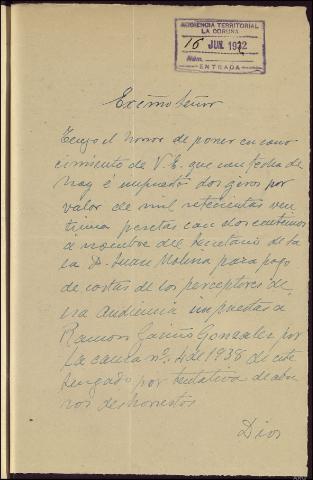 AUDIENCIA TERRITORIAL
LA CORUÑA
16 JUN. 1942
Núm.
ENTRADA
Excmo Señor
Tengo el honor de poner en cono
cimiento de V.E. que con fecha de
hoy é impuesto dos giros por
valor de mil setecientas vein
pesetas con dos centimos
a nombre del Secretario de la
la D. Juan Molina para pago
de costas de los perceptores de
esa Audiencia impuestas a
Ramon Gonzalez por
la causa nº. 4 de 1938 de este
Juzgado por tentativa de abu
sos deshonestos
Dios